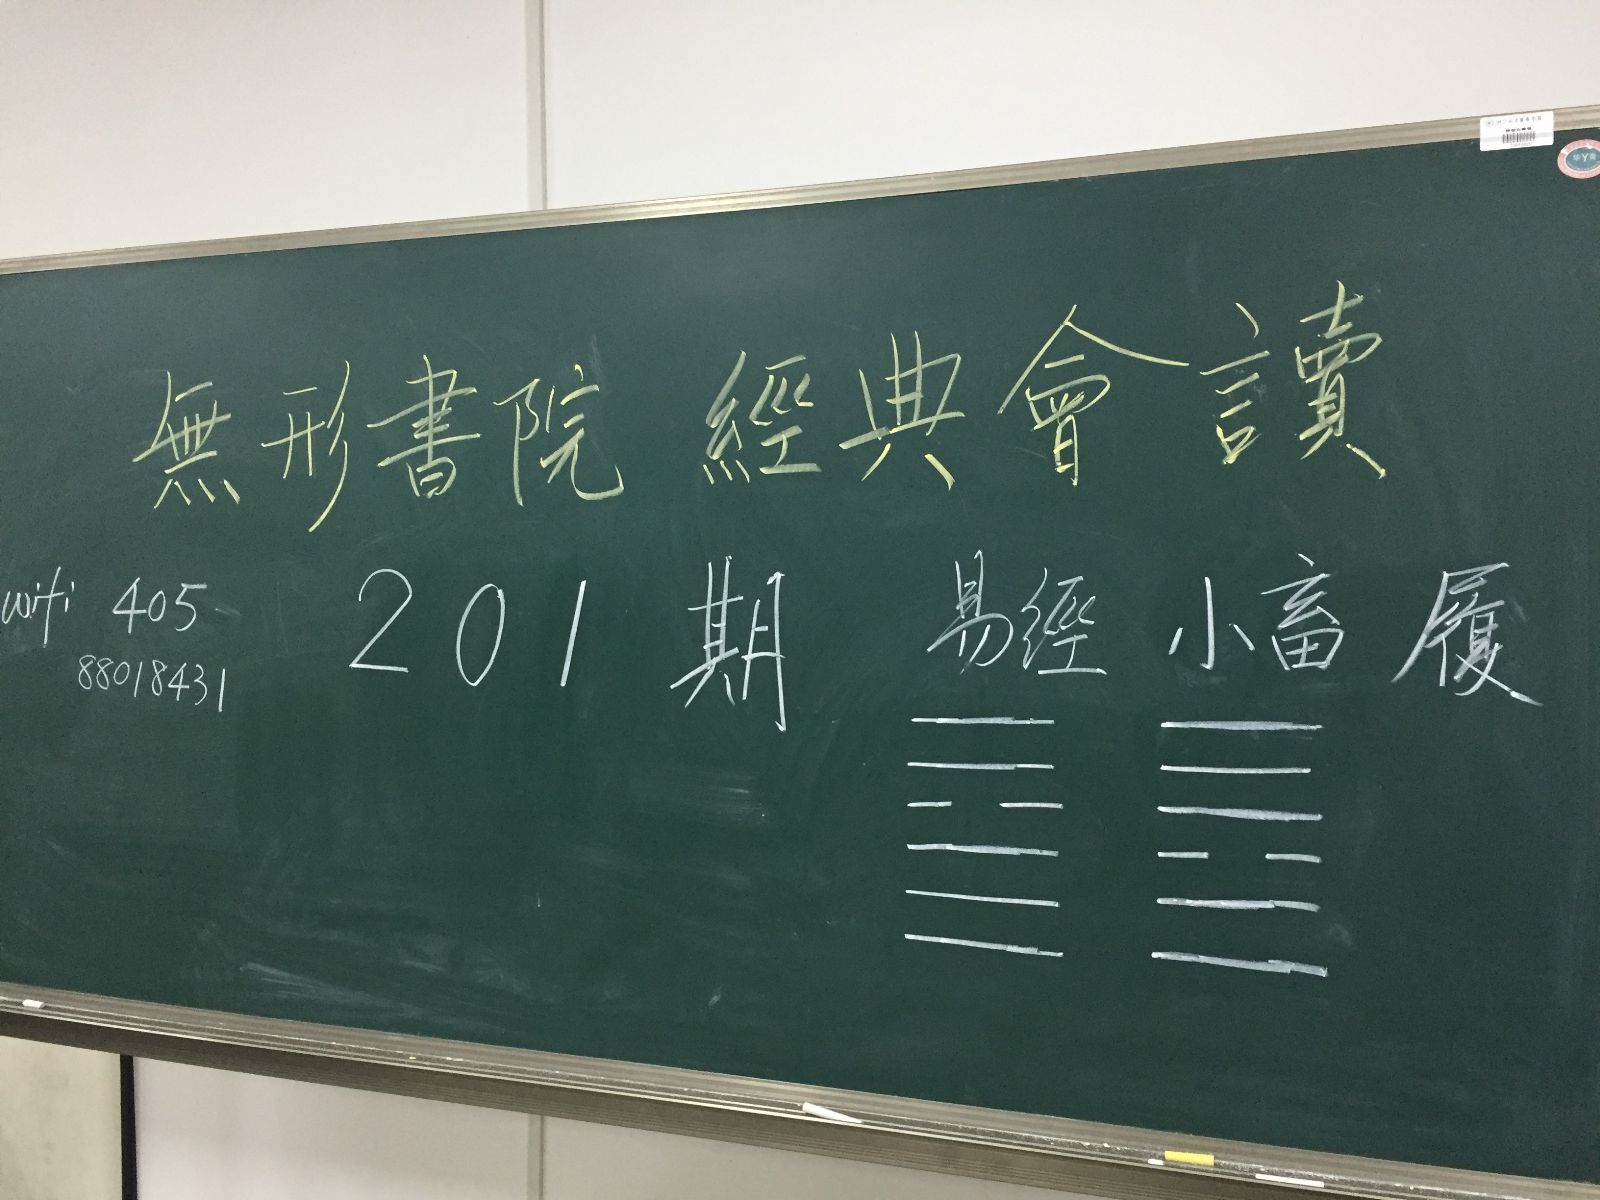 無形書院 經典會讀
wifi 405
88018431
201期
易經 小畜 履